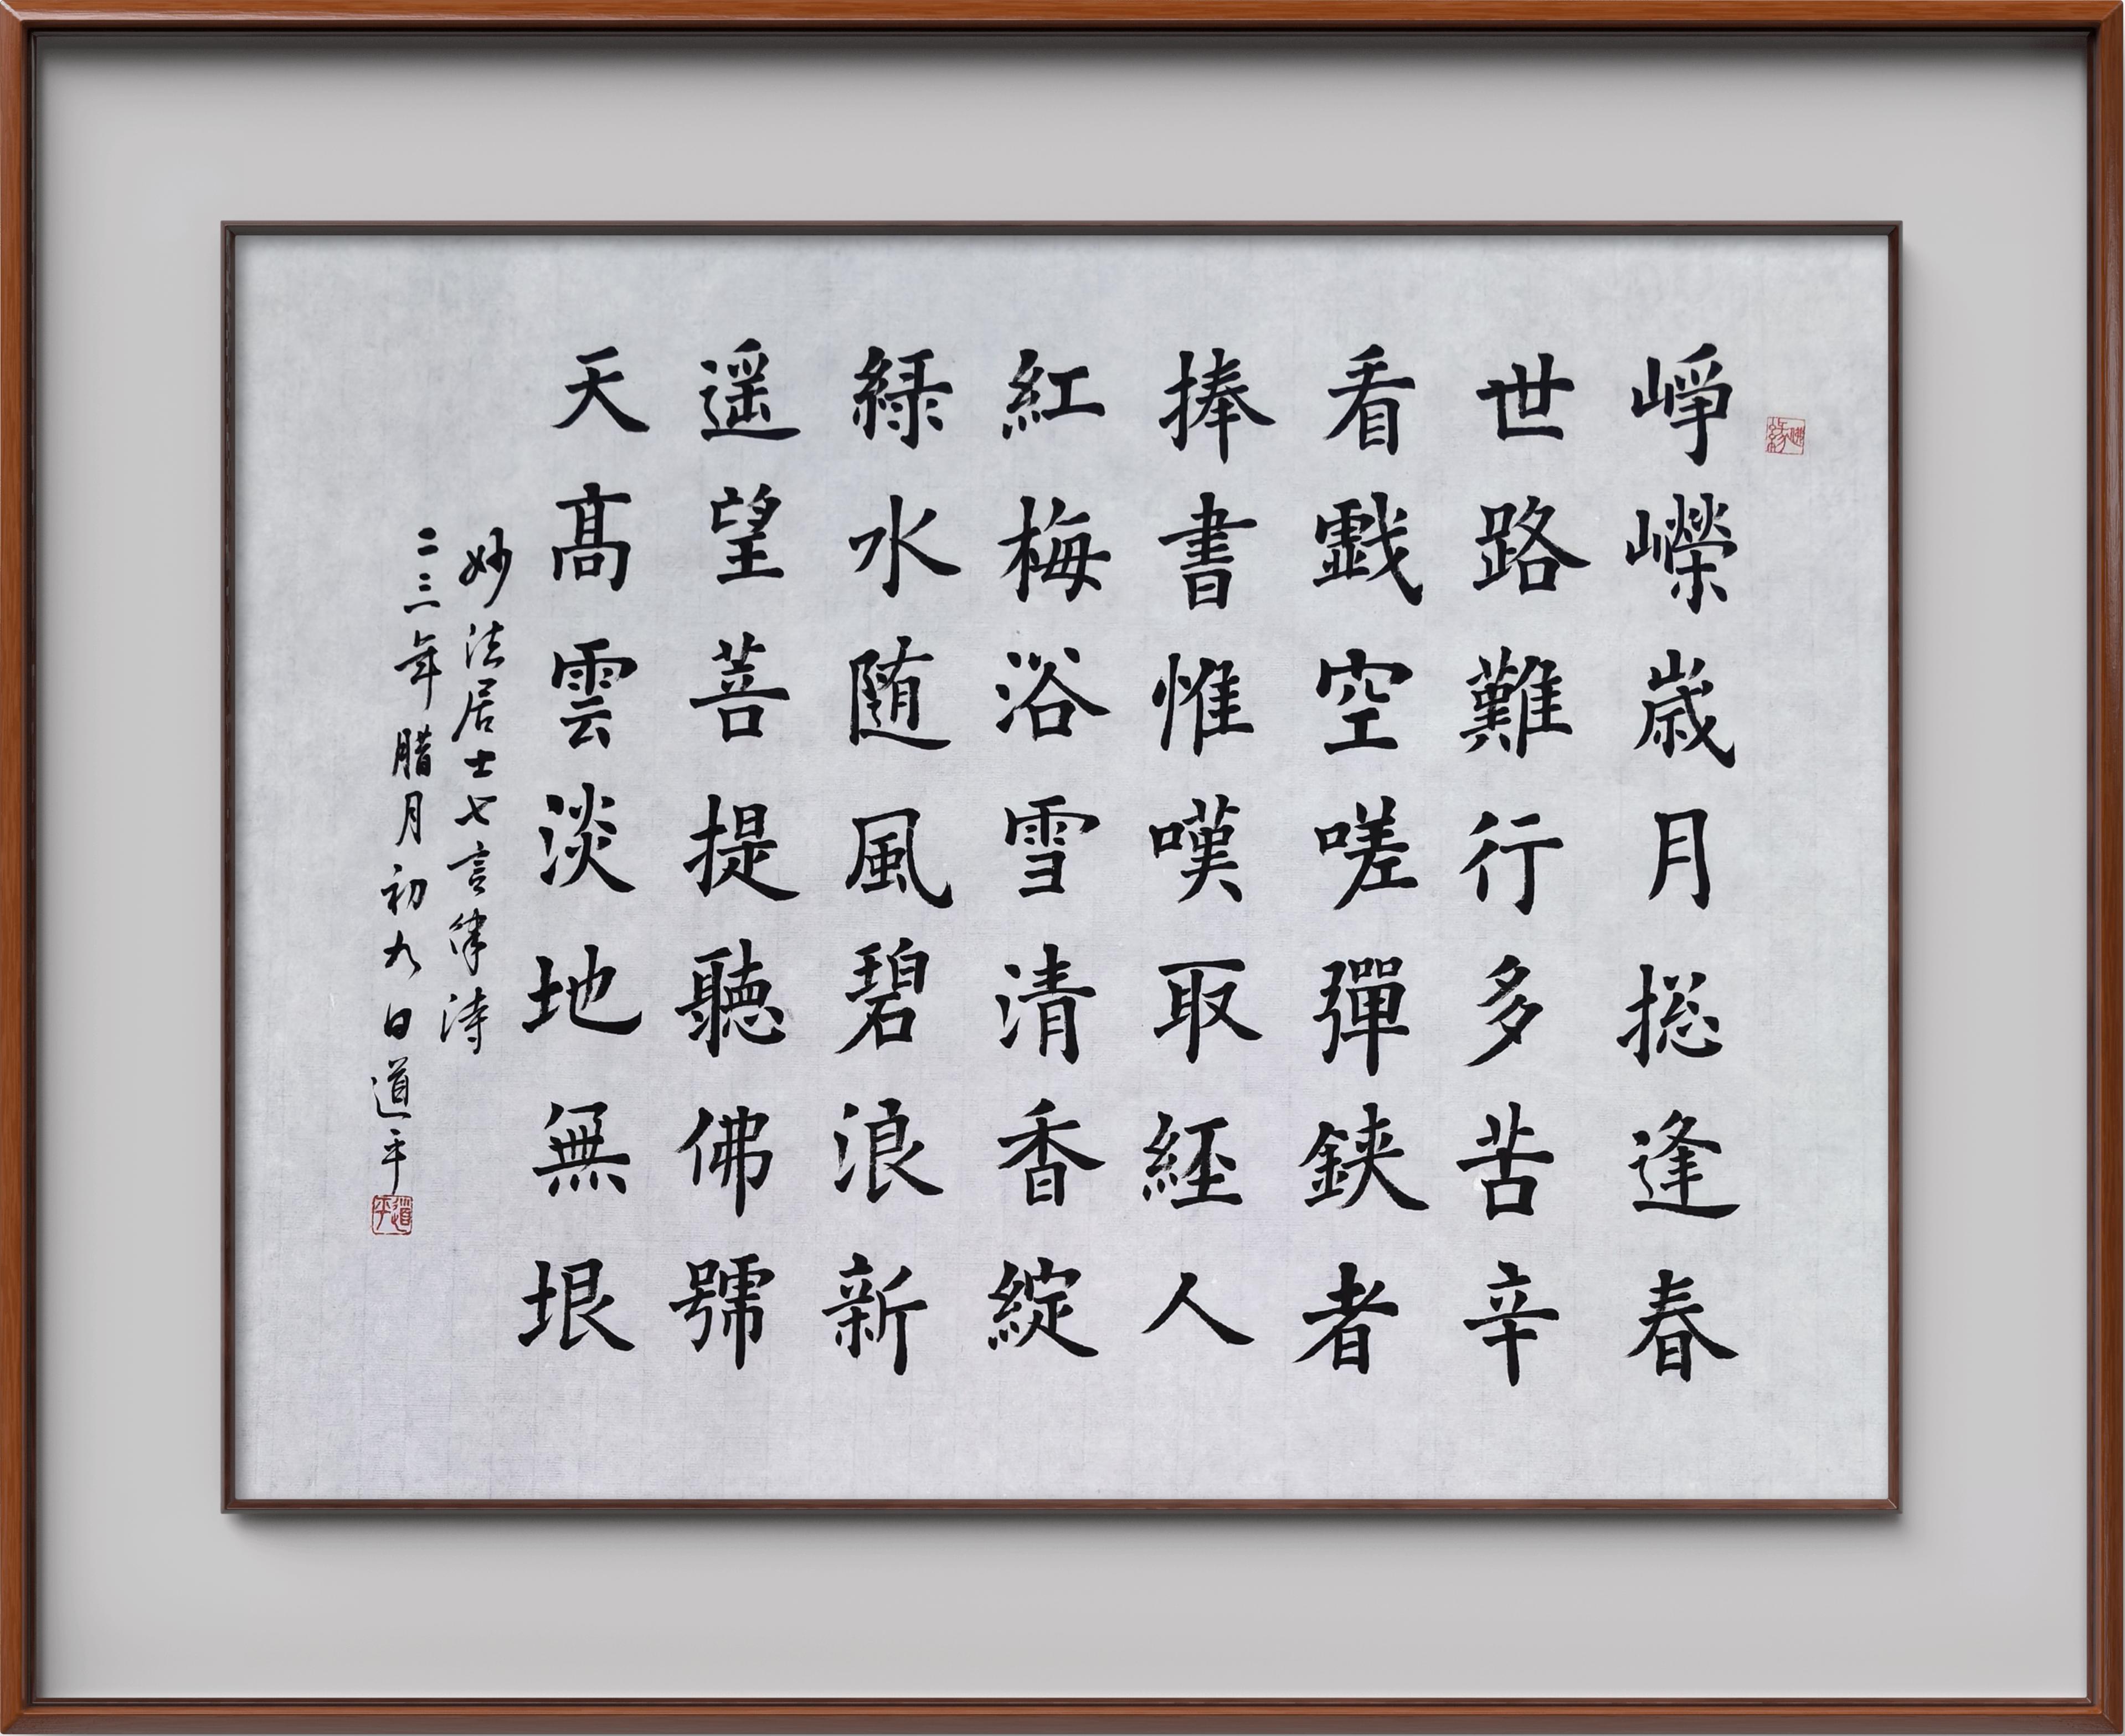 佛緣
崢嶸歲月摠逢春
世路難行多苦辛
看戯空嗟彈鋏者
捧書惟嘆取經人
紅梅浴雪清香綻
緑水随風碧浪新
遥望菩提聽佛號
天高雲淡地無垠
妙法居士七言律诗
二三年腊月初九日道平
道平